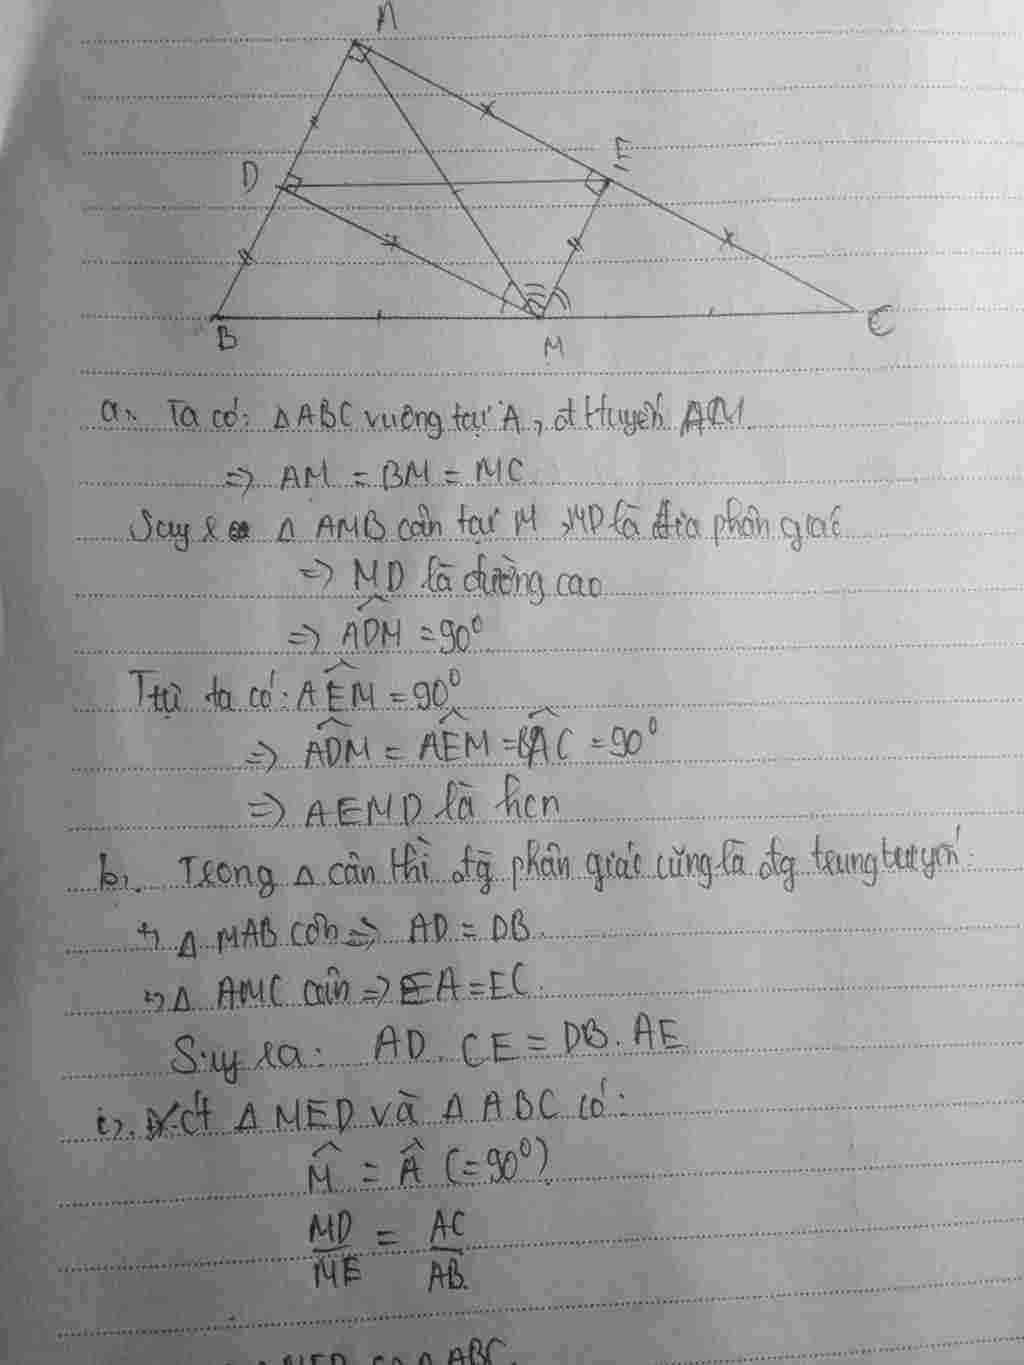 A
D
E
B
M
C
a, Ta có: Δ ABC vuông tại A, đt tuyến AM.
=> AM = BM = MC
Suy ra Δ AMB cân tại M, MD là phân giác
=> MD là đường cao
=> ADM = 90°
Ttự ta có: AEM = 90°
=> ADM = AEM = BAC = 90°
=> AEMD là hcn
b, Trong Δ cân thì đg phân giác cũng là đg trung tuyến:
+, Δ MAB cân => AD = DB.
+, Δ AMC cân => EA = EC.
Suy ra: AD . CE = DB . AE
c, Xét Δ MED và Δ ABC có:
M = A (= 90°)
MD/ME = AC/AB.
ABC.